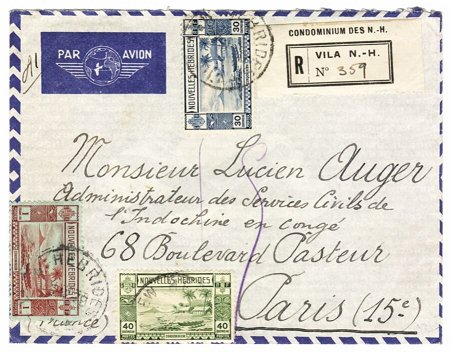 PAR AVION
30 30
NOUVELLES HÉBRIDES
30 30
CONDOMINIUM DES N.-H.
R VILA N.-H.
N° 359
Monsieur Lucien Auger
Administrateur des Services Civils de
l'Indochine en congé
68 Boulevard Pasteur
Paris (15e)
(France)
1 1
NOUVELLES HÉBRIDES
NOUVELLES HÉBRIDES
40 40
HEBRIDES